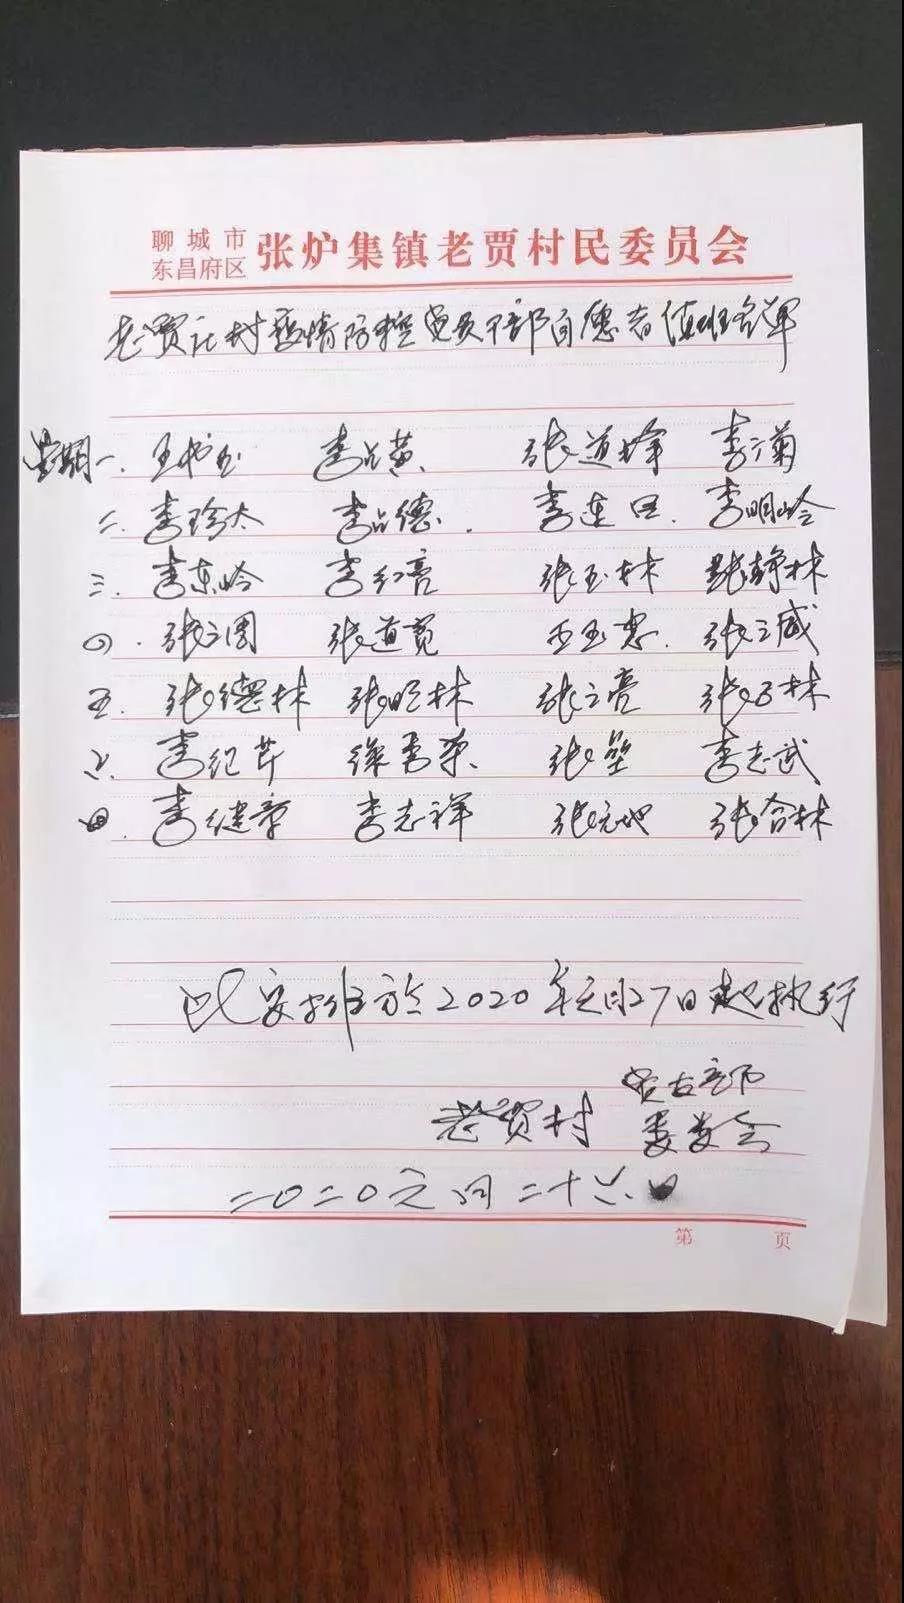 聊城市
东昌府区 张炉集镇老贾村民委员会
老贾庄村疫情防控党员干部自愿者值班名单
星期一、王书玉 李占黄 张道峰 李立菊
二、李珍太 李占德 李连臣 李明岭
三、李东岭 李红亮 张玉林 张静林
四、张立周 张道宽 王玉忠 张立威
五、张德林 张旺林 张立亮 张巧林
六、李纪芹 徐秀荣 张垒 李志武
日、李健章 李志祥 张 张合林
此安排于2020年元月27日起执行
老贾村 党支部
委会
二〇二〇元月二十六日
第 页